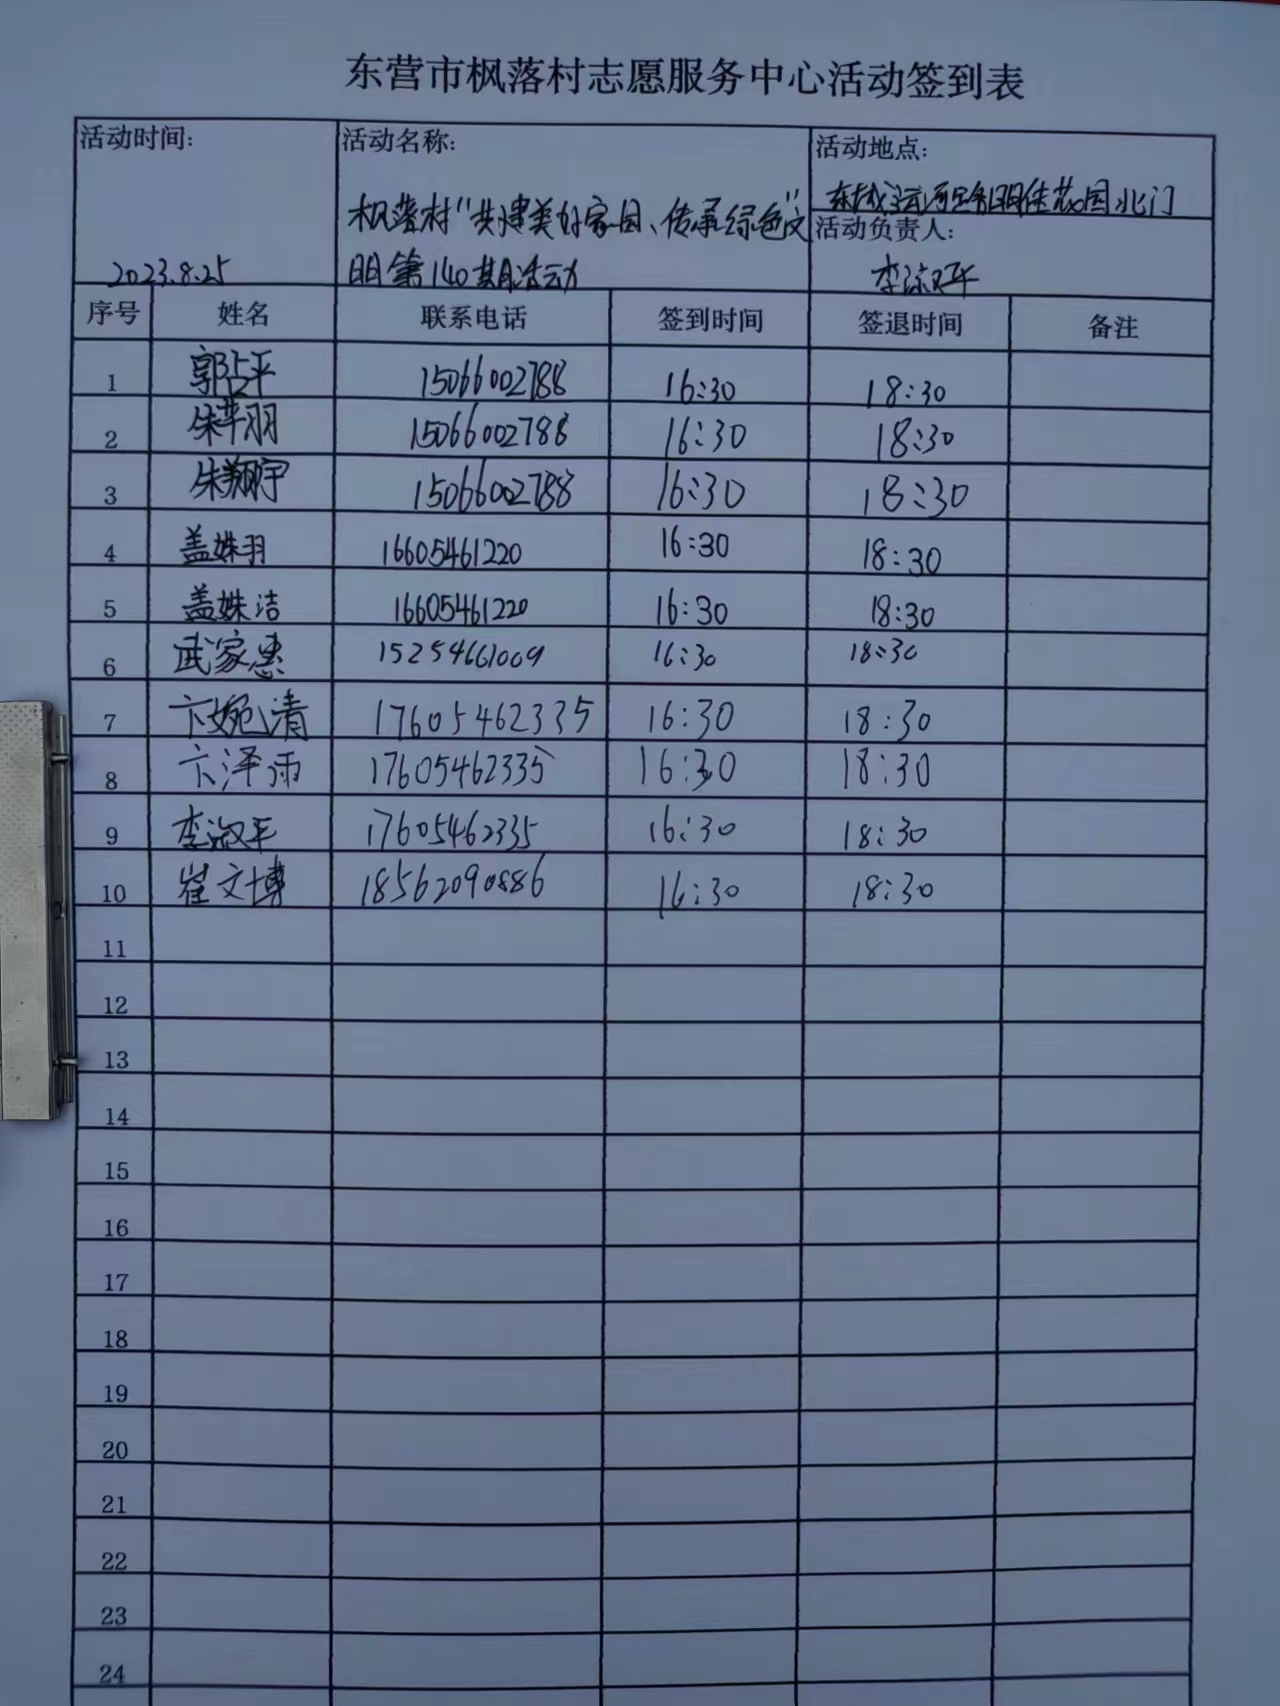 东营市枫落村志愿服务中心活动签到表
活动时间: 2023.8.25
活动名称: 枫落村"共建美好家园、传承绿色文
明第140期活动
活动地点: 佳花园北门
活动负责人: 李淑平
序号 姓名 联系电话 签到时间 签退时间 备注
1 郭占平 15066002788 16:30 18:30
2 朱芊羽 15066002788 16:30 18:30
3 朱翔宇 15066002788 16:30 18:30
4 盖姝羽 16605461220 16:30 18:30
5 盖姝洁 16605461220 16:30 18:30
6 武家惠 15254661009 16:30 18:30
7 卞婉清 17605462335 16:30 18:30
8 卞泽雨 17605462335 16:30 18:30
9 李淑平 17605462335 16:30 18:30
10 崔文博 18562090886 16:30 18:30
11
12
13
14
15
16
17
18
19
20
21
22
23
24